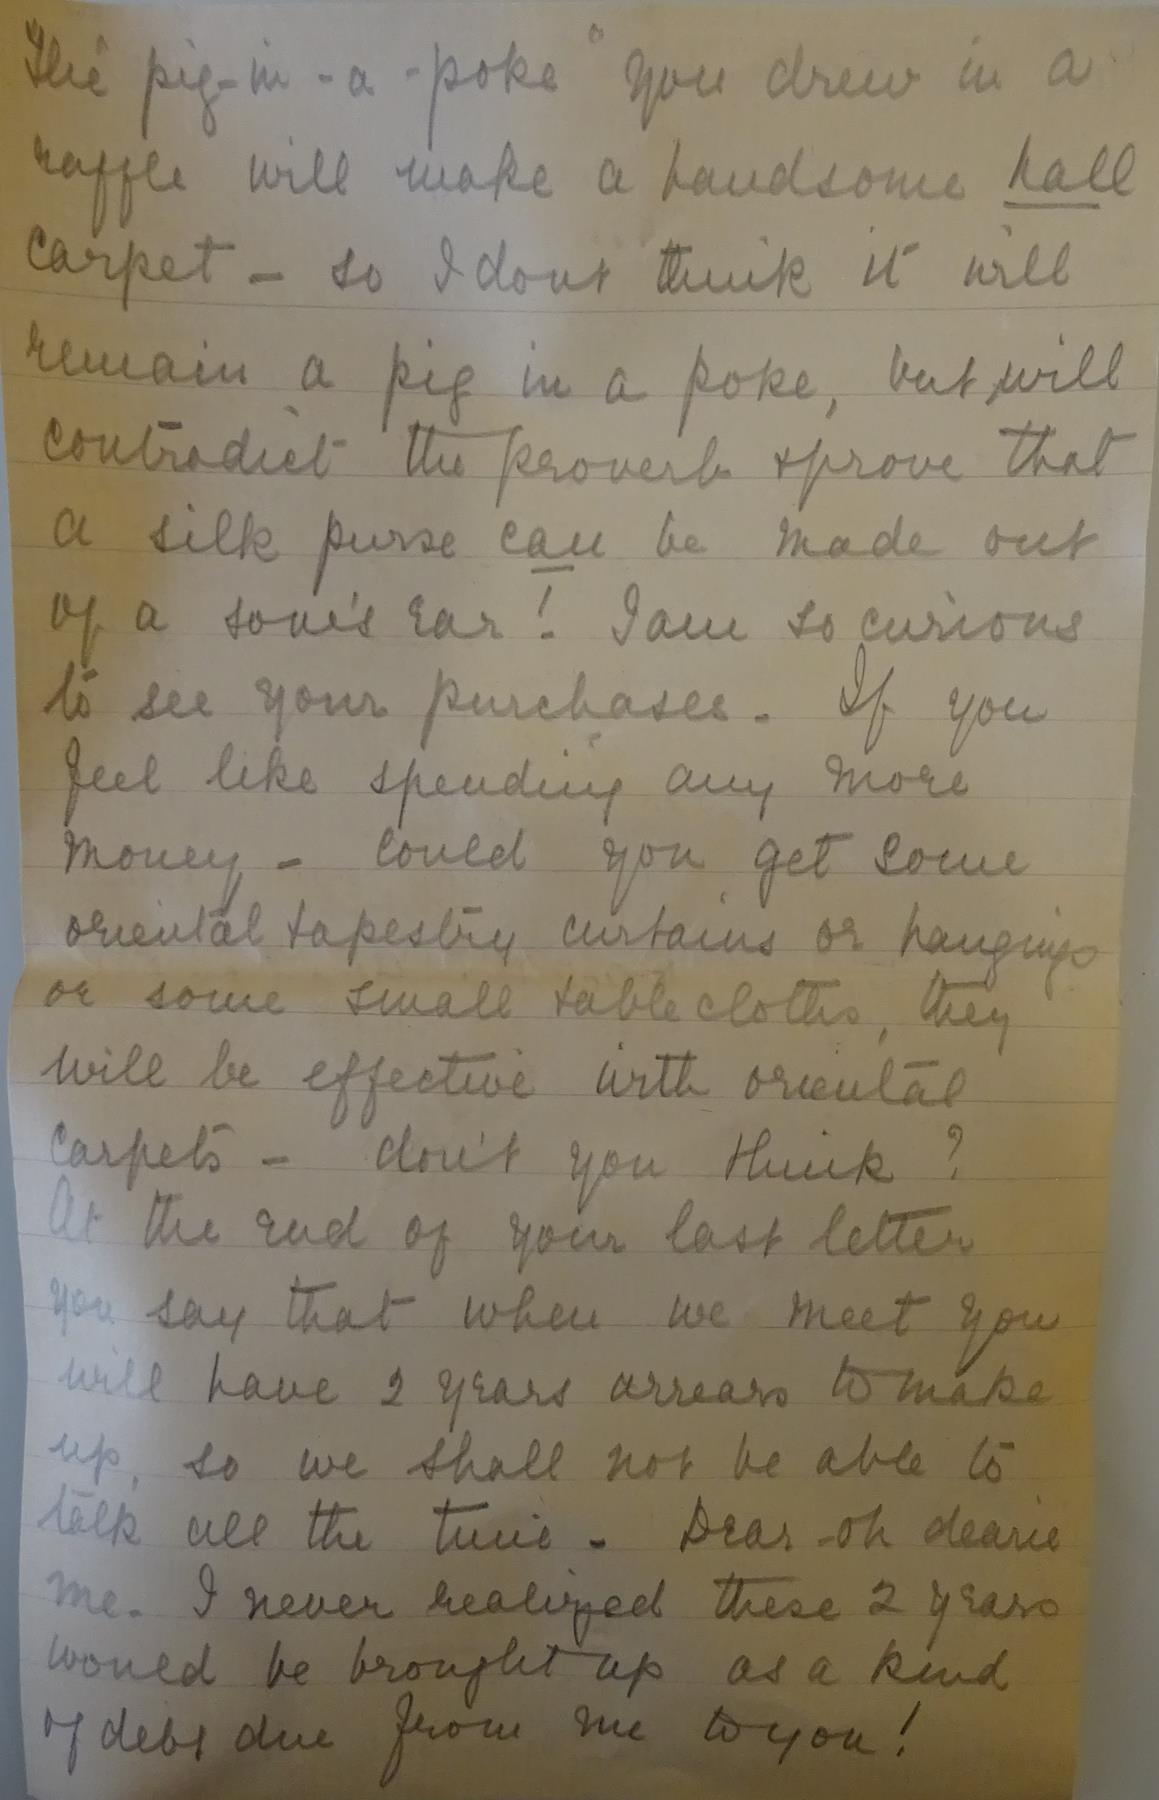 The "pig-in-a-poke" you drew in a
raffle will make a handsome hall
carpet - so I dont think it will
remain a pig in a poke, but will
contradict the proverb & prove that
a silk purse can be made out
of a sow's ear! I am so curious
to see your purchases. If you
feel like spending any more
money - could you get some
oriental tapestry curtains or hangings
or some small table cloths, they
will be effective with oriental
carpets - don't you think?
At the end of your last letter
you say that when we meet you
will have 2 years arrears to make
up, so we shall not be able to
talk all the time - Dear-oh dearie
me. I never realized these 2 years
would be brought up as a kind
of debt due from me to you!